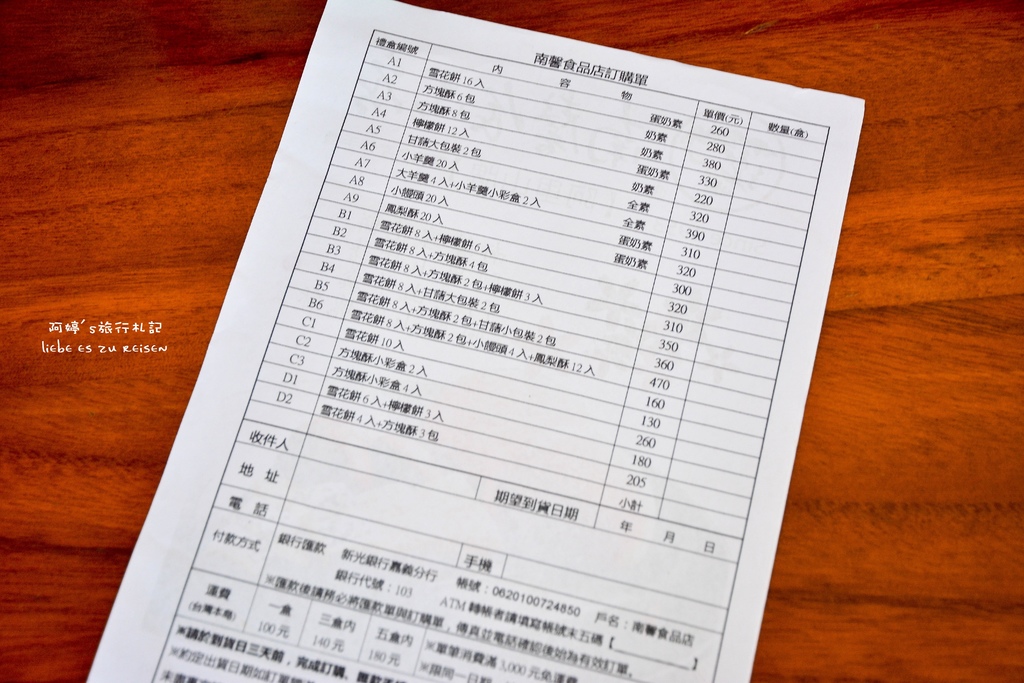 南馨食品店訂購單
禮盒編號 內 容 物 單價(元) 數量(盒)
A1 雪花餅16入 蛋奶素 260
A2 方塊酥6包 奶素 280
A3 方塊酥8包 奶素 380
A4 檸檬餅12入 蛋奶素 330
A5 甘藷大包裝2包 奶素 220
A6 小羊羹20入 全素 320
A7 大羊羹4入+小羊羹小彩盒2入 全素 390
A8 小饅頭20入 蛋奶素 310
A9 鳳梨酥20入 蛋奶素 320
B1 雪花餅8入+檸檬餅6入 300
B2 雪花餅8入+方塊酥4包 320
B3 雪花餅8入+方塊酥2包+檸檬餅3入 310
B4 雪花餅8入+甘藷大包裝2包 350
B5 雪花餅8入+方塊酥2包+甘藷小包裝2包 360
B6 雪花餅8入+方塊酥2包+小饅頭4入+鳳梨酥12入 470
C1 雪花餅10入 160
C2 方塊酥小彩盒2入 130
C3 方塊酥小彩盒4入 260
D1 雪花餅6入+檸檬餅3入 180
D2 雪花餅4入+方塊酥3包 205
小計
收件人 期望到貨日期 年 月 日
地 址
電 話 手機
付款方式 銀行匯款 新光銀行嘉義分行 帳號:0620100724850 戶名:南馨食品店
銀行代號:103 ATM轉帳者請填寫帳號末五碼【 】
※匯款後請務必將匯款單與訂購單,傳真並電話確認後始為有效訂單。
運費 一盒 三盒內 五盒內 ※單筆消費滿3,000元免運費
(台灣本島) 100元 140元 180元 ※限同一日期
※請於到貨日三天前,完成訂購、匯款
※約定出貨日期如訂單
阿婷's旅行札記
liebe es zu reisen